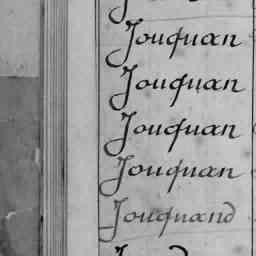 Jouquan
Jouquan
Jouquan
Jouquan
Jouquand